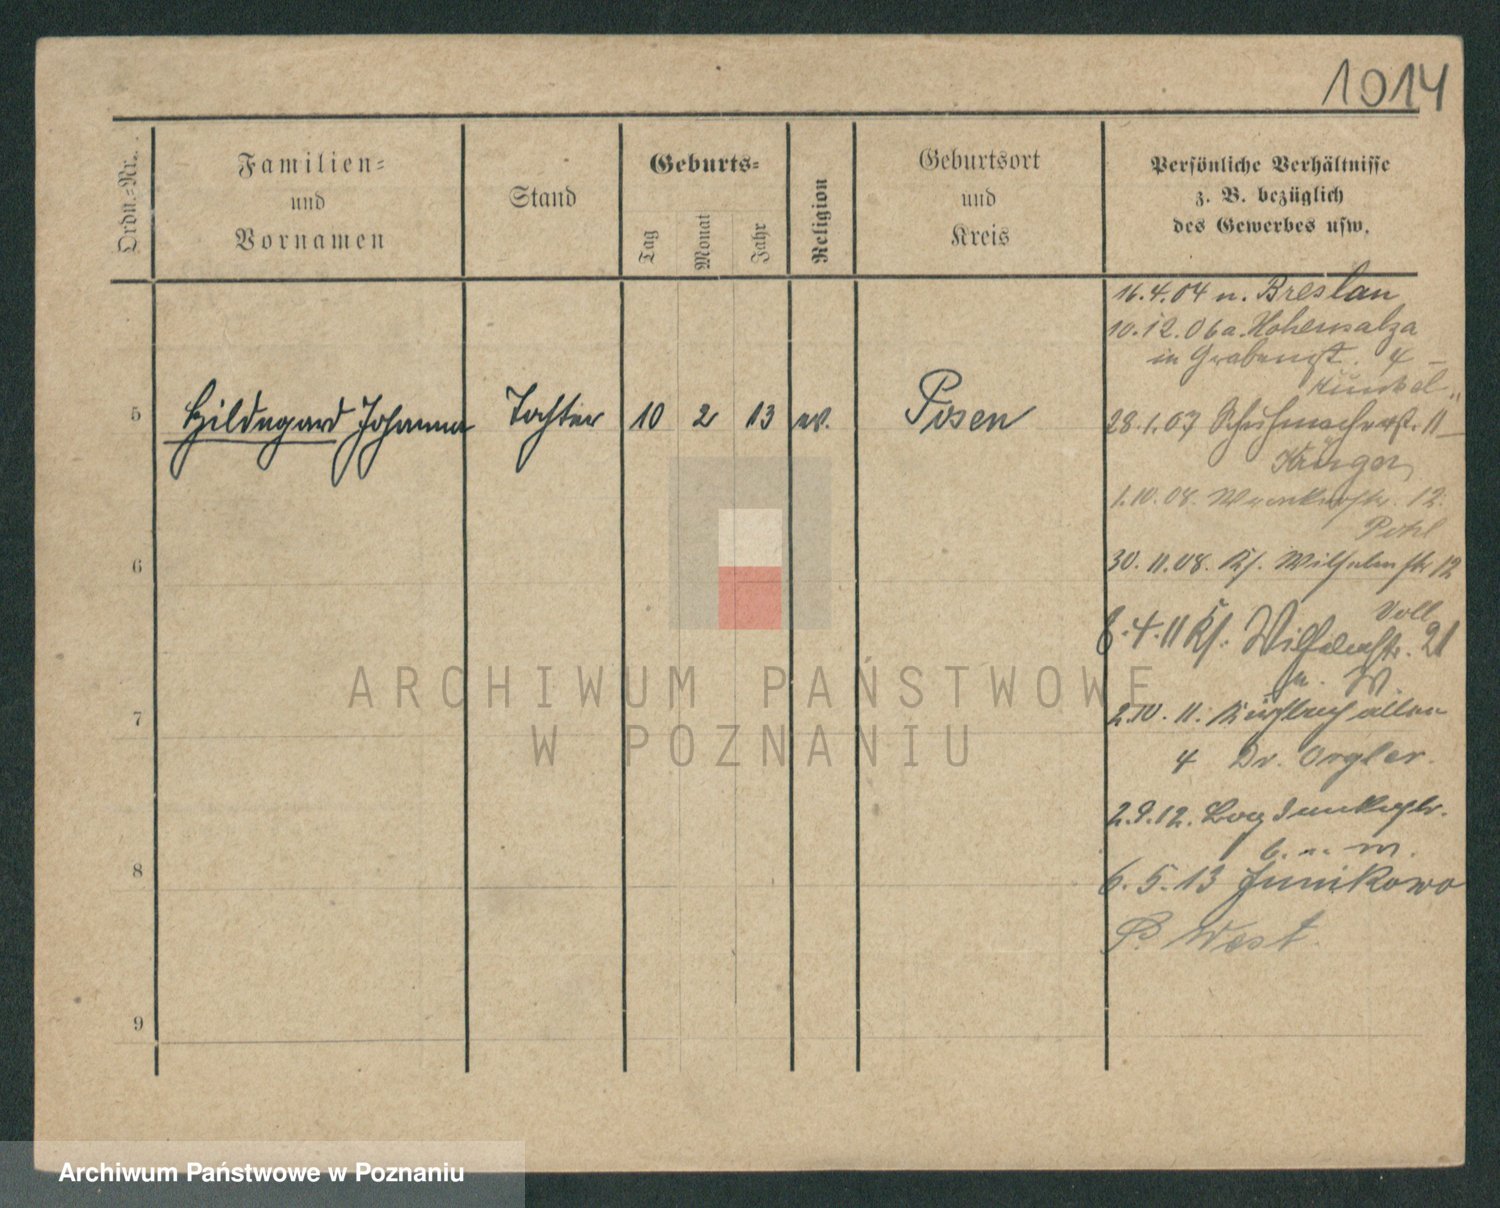 1014
Ordn.=Nr.
Familien=
und
Vornamen
Stand
Geburts=
Tag
Monat
Jahr
Religion
Geburtsort
und
Kreis
Persönliche Verhältnisse
z. B. bezüglich
des Gewerbes usw.
5 Hildegard Johanna Tochter 10 2 13 ev. Posen
6
7
8
9
16.4.04 n. Breslau
10.12.06 a. Hohensalza
in Grabengst. 4 –
Kunkel
28.1.07 Schuhmacherst. 11 –
Krüger
1.10.08. 12.
Pohl
30.11.08. Kf. Wilhelmstr 12
Voll
8.4.11 Kf. Wilhelmstr. 21
n. W.
2.10.11.
4 Dr. Orgler.
2.9.12.
6. n. W.
6.5.13 Junikowo
P. West.
ARCHIWUM PAŃSTWOWE
W POZNANIU
Archiwum Państwowe w Poznaniu